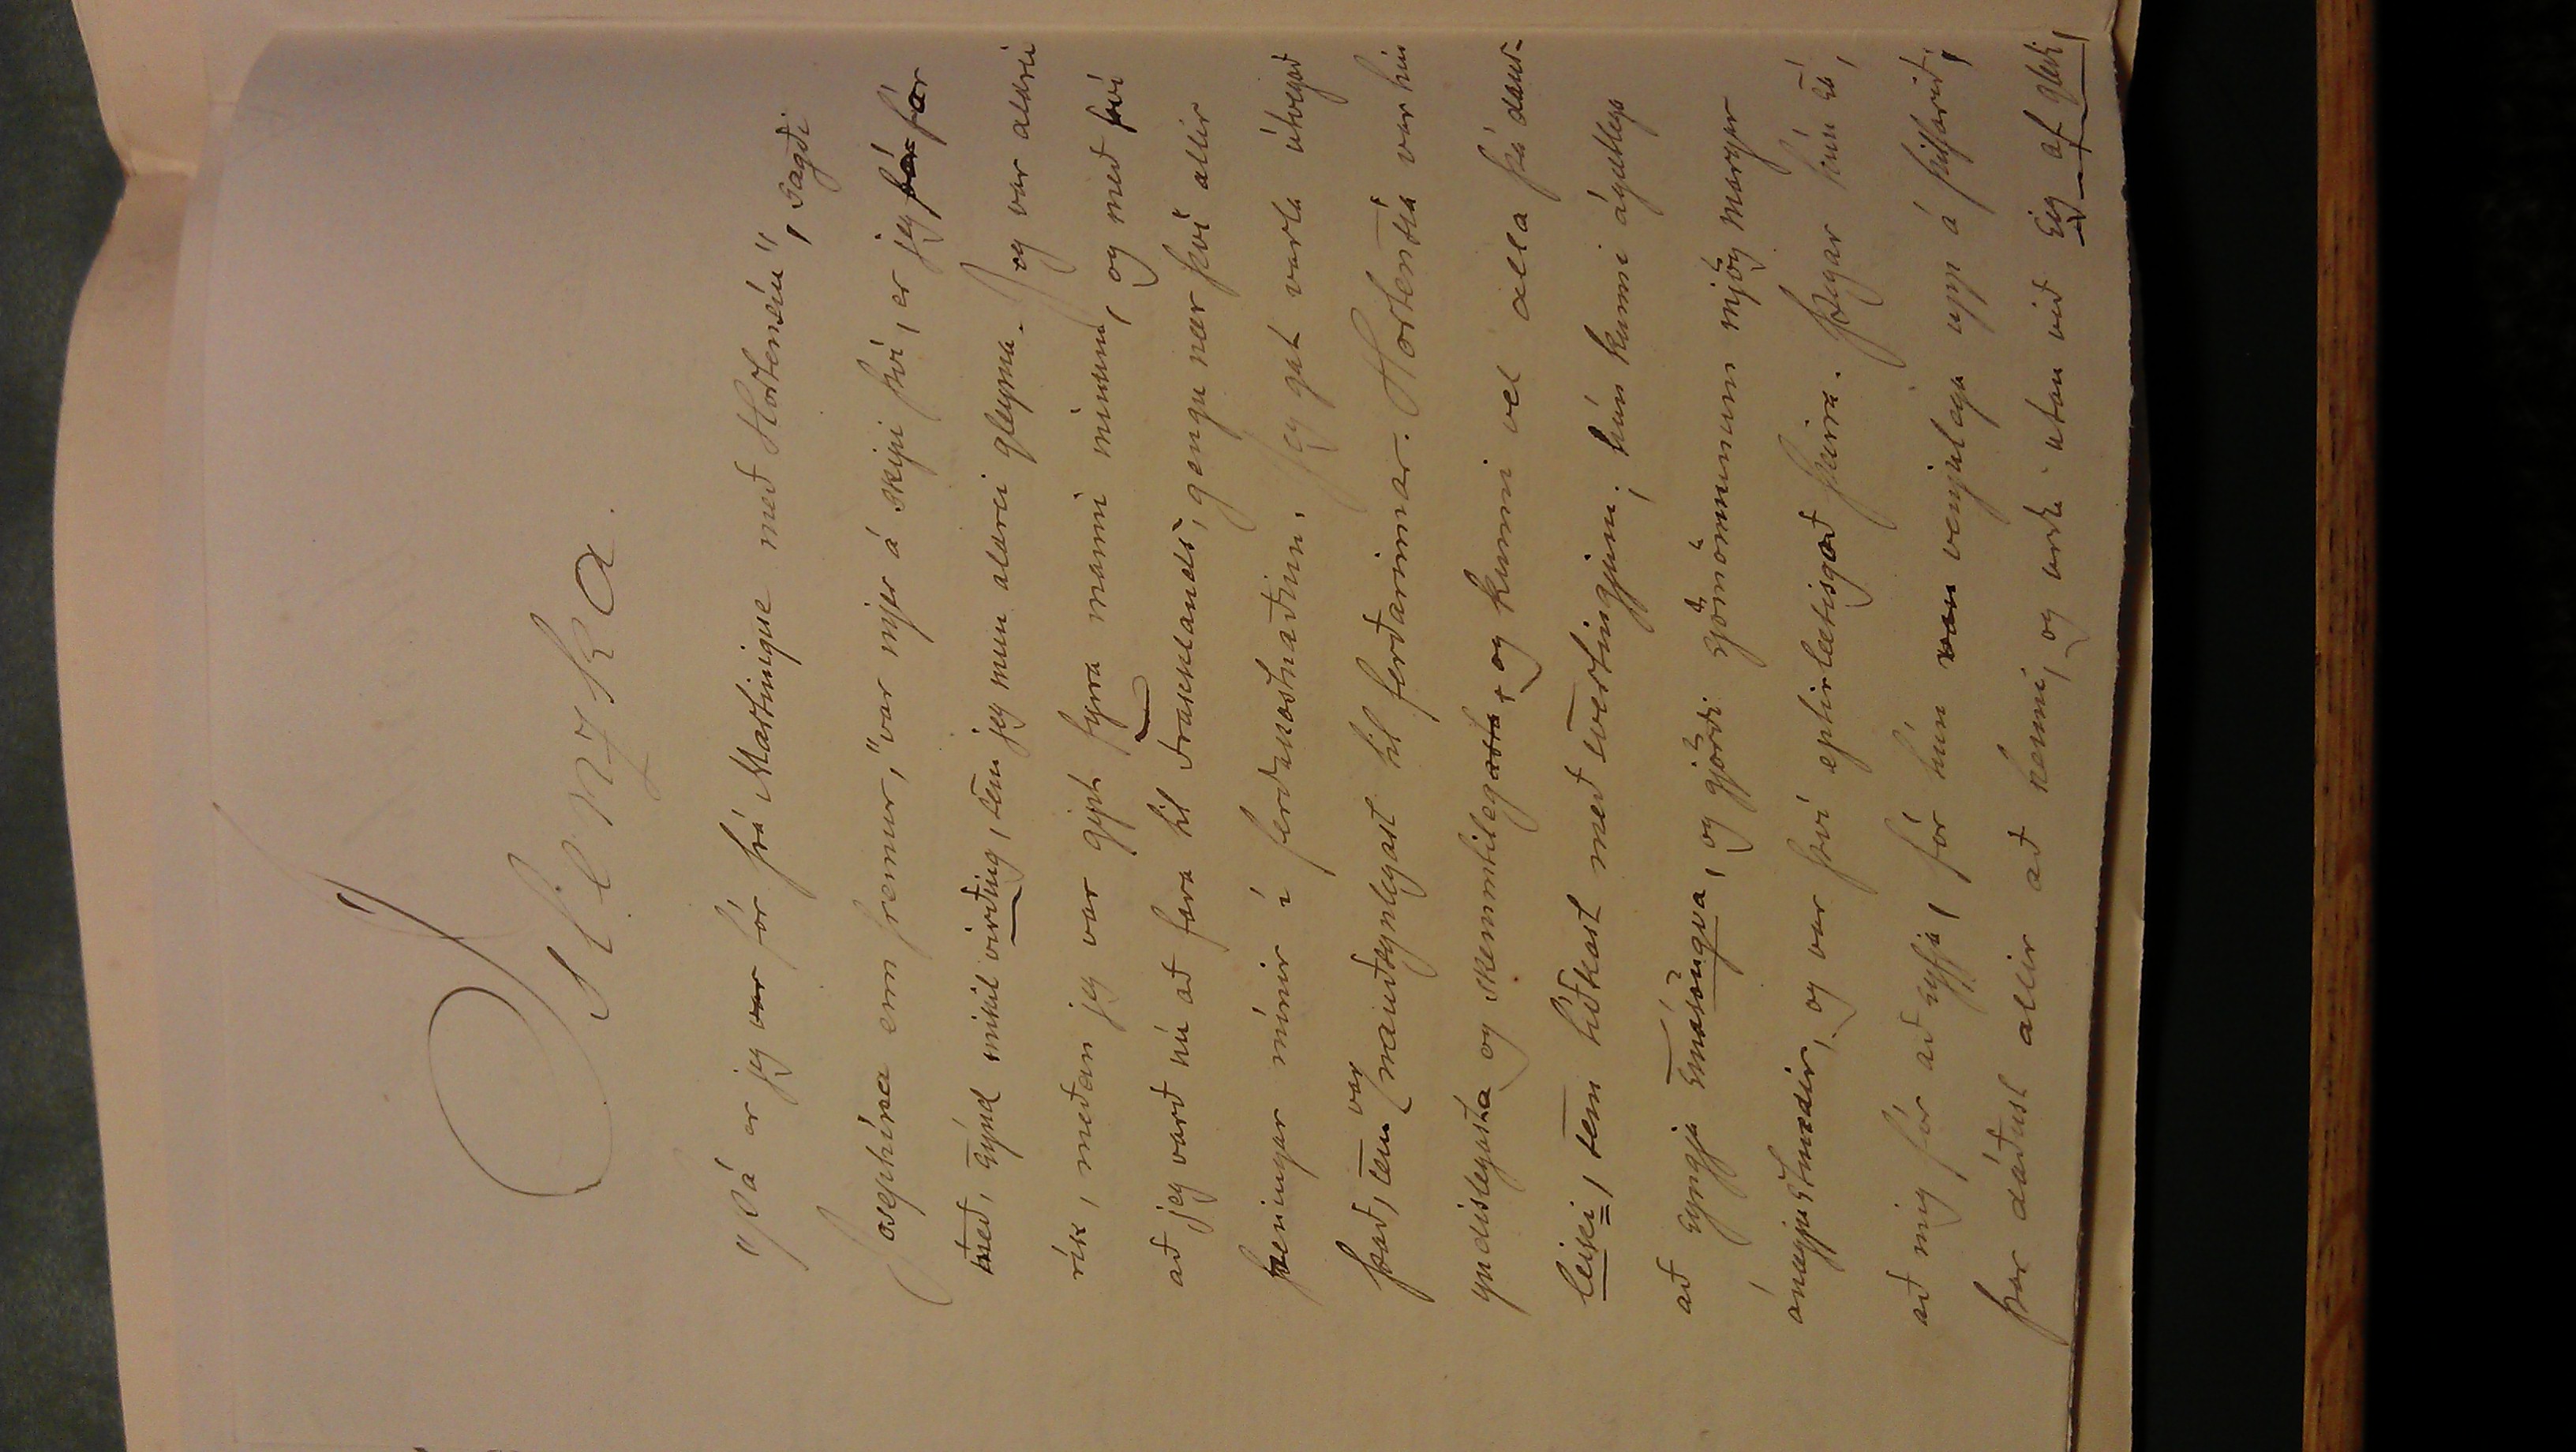 Íslenzka.
"Þá er jeg var fór frá Martinique með Hortensíu", sagði
Josephína enn fremur, "var mjer á skipi því, er jeg fór fór
með, sýnd mikil virðing, sem jeg mun aldrei gleyma. Jeg var aldrei
rík, meðan jeg var gipt fyrra manni mínum, og með því
að jeg varð nú að fara til Frakklands, gengu nær því allir
peningar mínir í ferðakostnaðinn. Jeg gat varla útvegað
það, sem var nauðsynlegast til ferðarinnar. Hortensía var hin
yndislegasta og skemmtilegasta, og kunni vel alla þá dans-
leiki, sem tíðkast með svertingjum; hún kunni ágætlega
að syngja smásöngva, og gjörði sjómönnunum mjög margar
ánægjustundir, og var því eptirlætisgoð þeirra. Þegar hún sá,
að mig fór að syfja, fór hún van venjulega upp á þilfarið;
þar dáðust allir að henni, og urðu utan við sig af gleði,